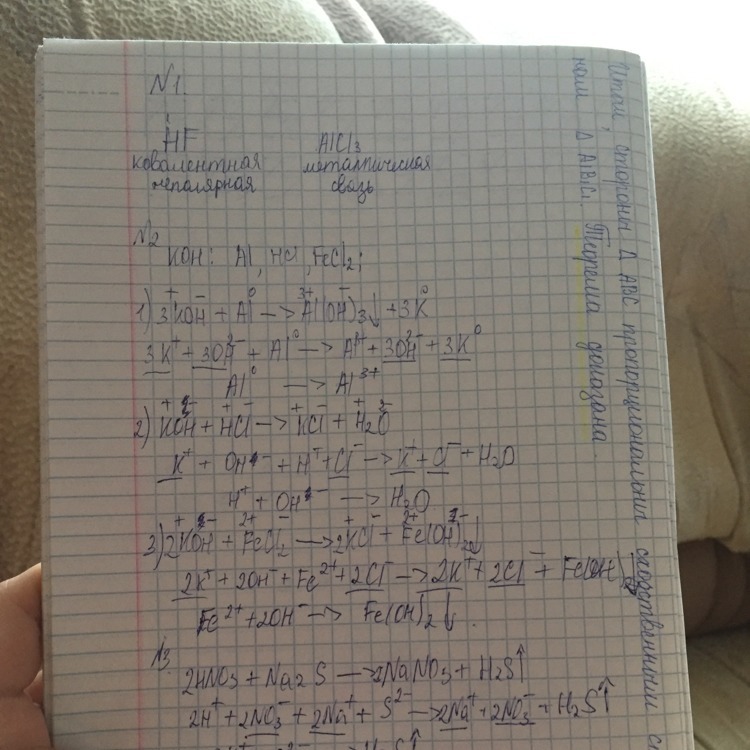 N1.
HF AlCl3
ковалентная металлическая
неполярная связь
N2
KOH: Al, HCl, FeCl2;
1) 3KOH + Al —> Al(OH)3↓ + 3K
3K+ + 3OH- + Al0 —> Al3+ + 3OH- + 3K0
Al0 —> Al3+
2) KOH + HCl —> KCl + H2O
K+ + OH- + H+ + Cl- —> K+ + Cl- + H2O
H+ + OH- —> H2O
3) 2KOH + FeCl2 —> 2KCl + Fe(OH)2↓
2K+ + 2OH- + Fe2+ + 2Cl- —> 2K+ + 2Cl- + Fe(OH)2↓
Fe2+ + 2OH- —> Fe(OH)2↓.
N3
2HNO3 + Na2S —> 2NaNO3 + H2S↑
2H+ + 2NO3- + 2Na+ + S2- —> 2Na+ + 2NO3- + H2S↑
H2S↑
Итак, стороны Δ ABC пропорциональны сходственным
Δ A1B1C1. Теорема доказана.